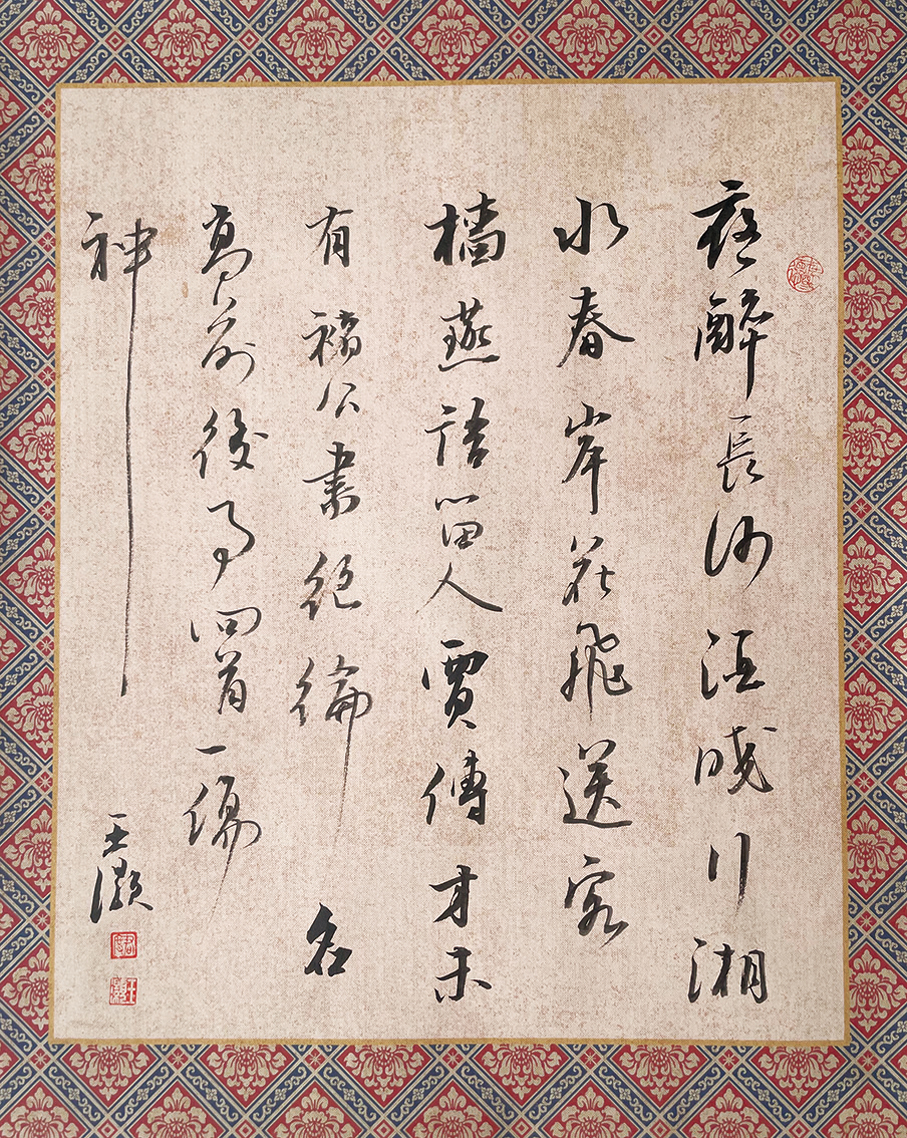 夜醉長沙酒曉行湘
水春岸花飛送客
檣燕語留人賈傅才未
有褚公書絕倫名
高前後事回首一傷
神
王灝